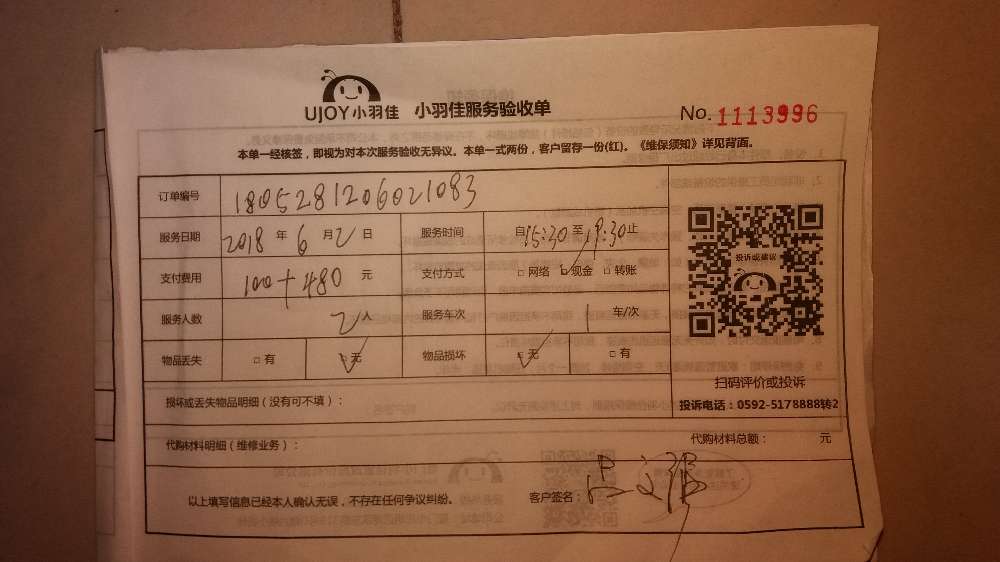 UJOY小羽佳 小羽佳服务验收单
No. 1113996
本单一经核签，即视为对本次服务验收无异议。本单一式两份，客户留存一份(红)。《维保须知》详见背面。
订单编号 1805281206021083
服务日期 2018 年 6 月 2 日 服务时间 自15:30至19:30止
支付费用 100+480 元 支付方式 □ 网络 ☑ 现金 □ 转账
投诉或建议
服务人数 2人 服务车次 1 车/次
物品丢失 □ 有 ☑ 无 物品损坏 ☑ 无 □ 有
扫码评价或投诉
损坏或丢失物品明细（没有可不填）：
投诉电话：0592-5178888转2
代购材料明细（维修业务）：
代购材料总额： 元
以上填写信息已经本人确认无误，不存在任何争议纠纷。 客户签名：